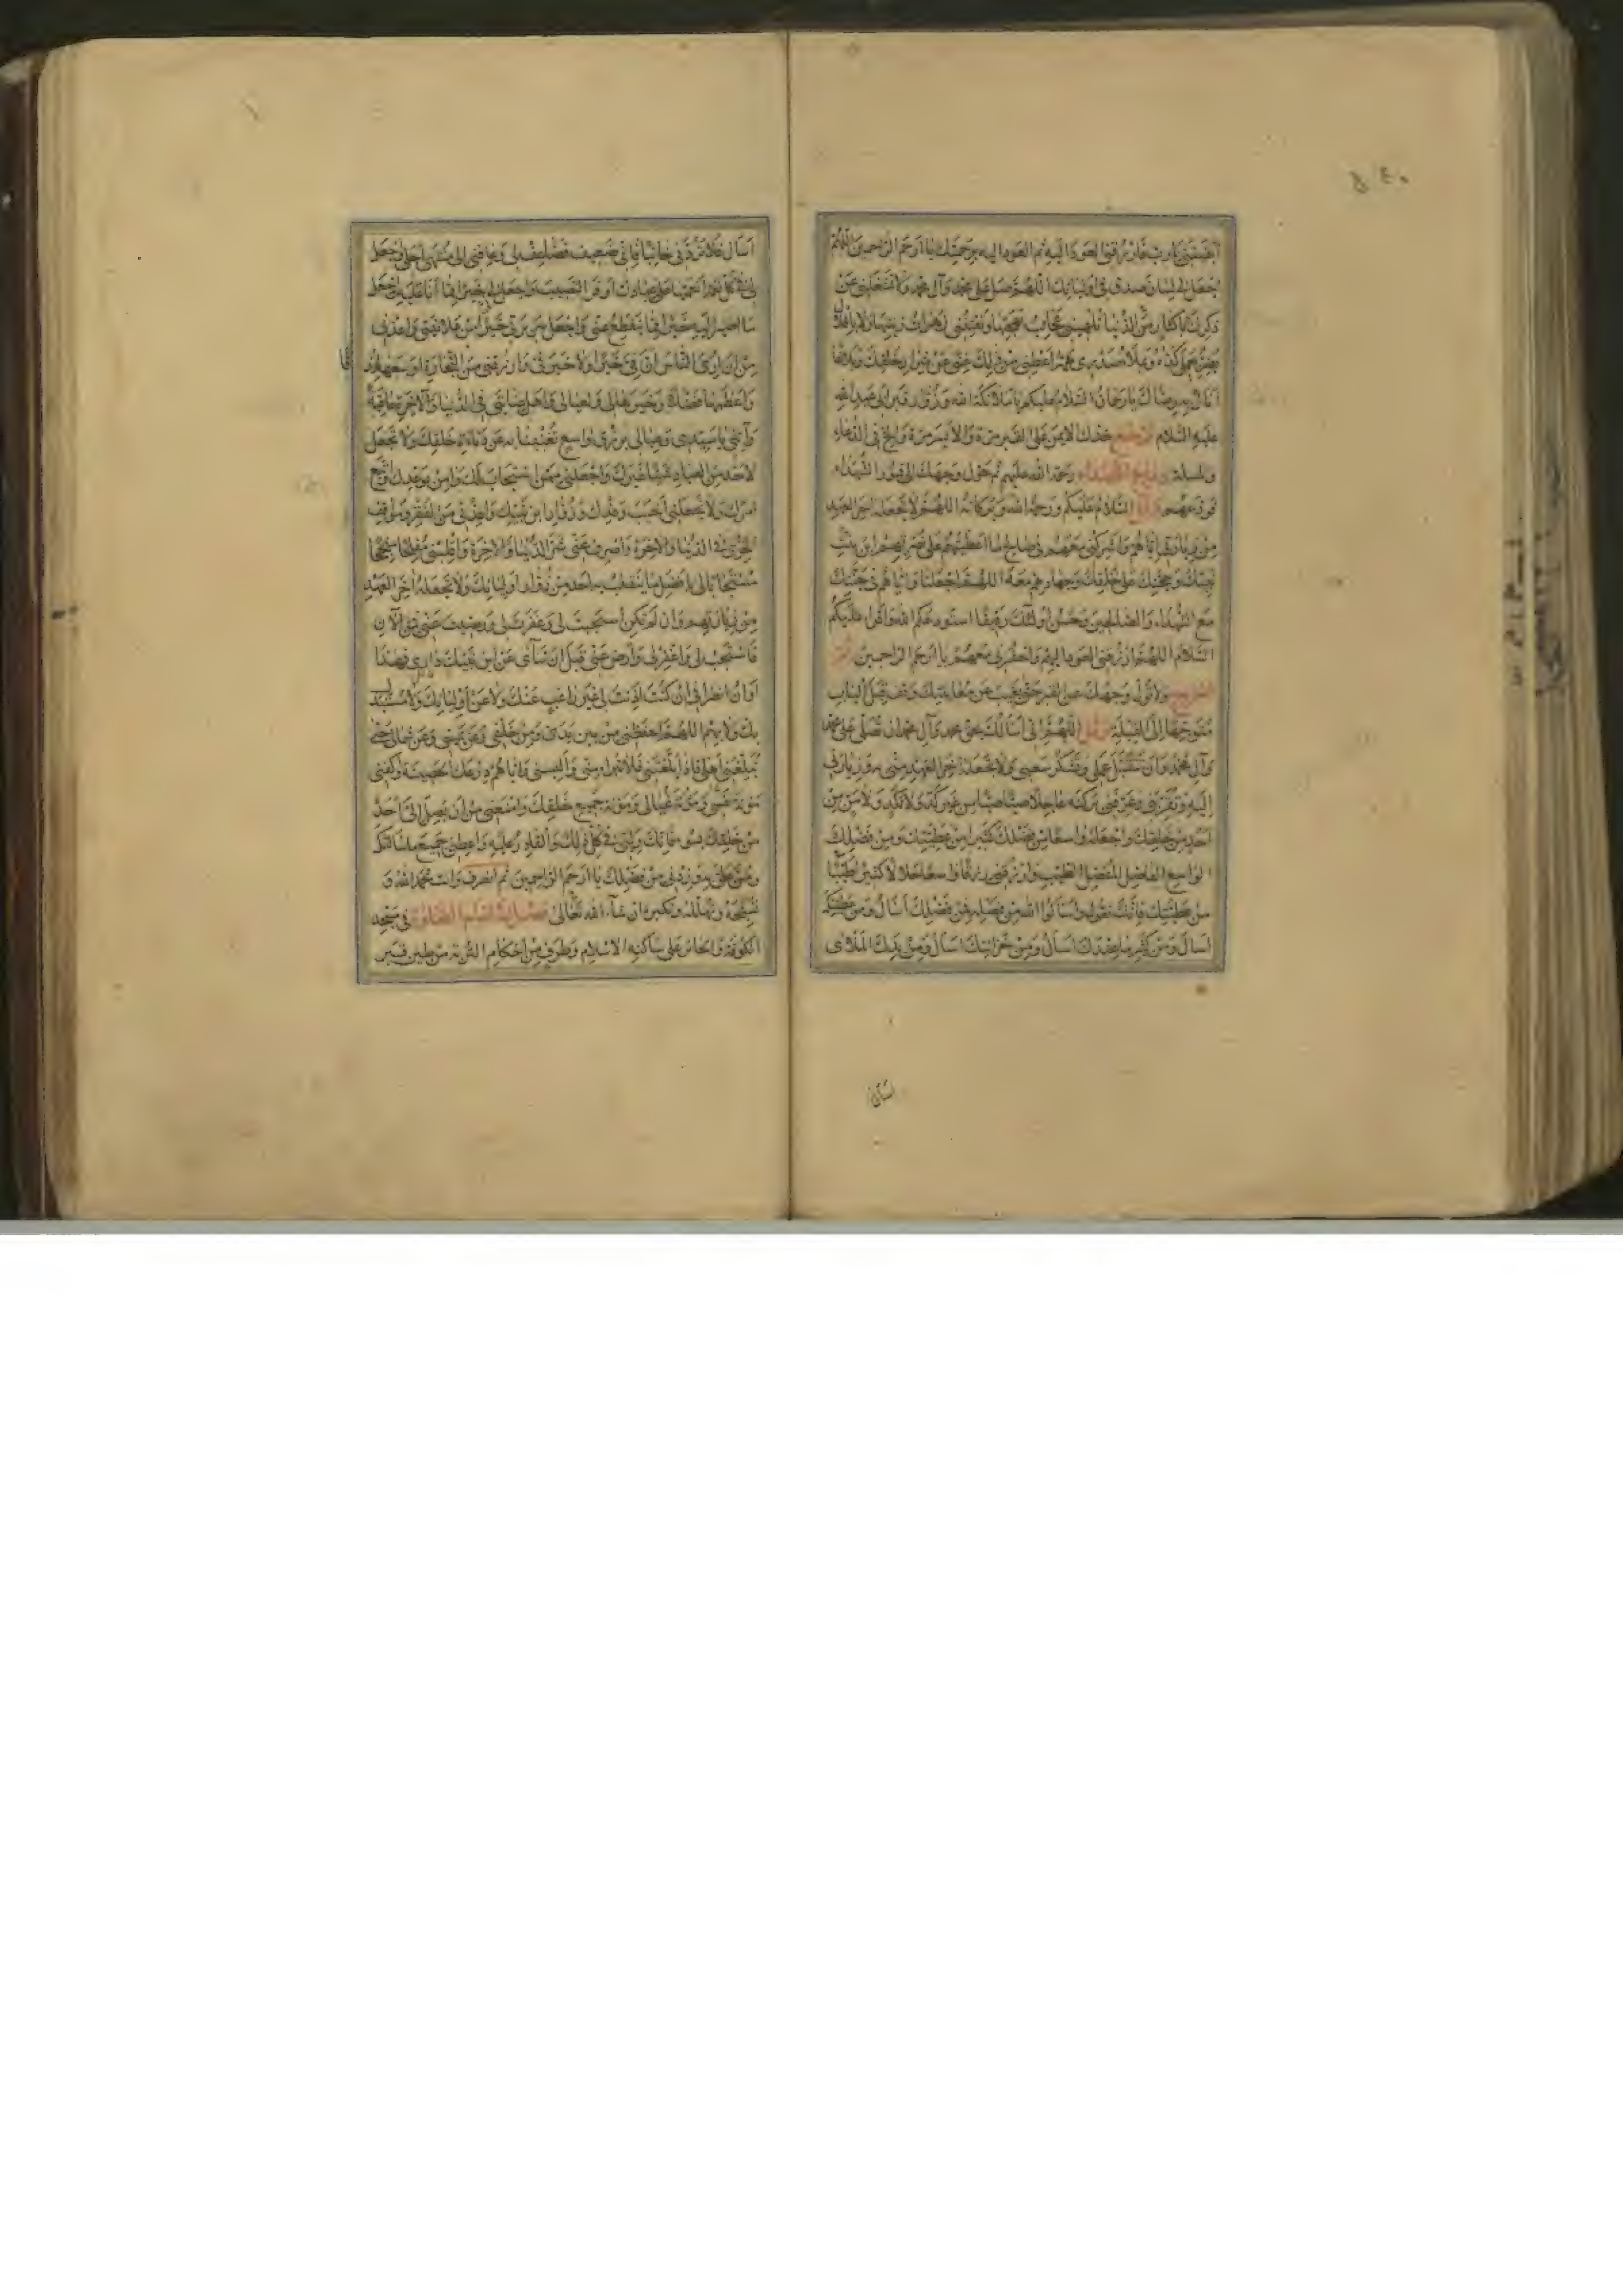 ابقيتني يا رب فارزقني العود اليه ثم العود اليه برحمتك يا ارحم الراحمين اللهم
اجعل لي لسان صدق في اوليائك اللهم صل على محمد وآل محمد ولا تشغلني عن
ذكرك باكثار من الدنيا تلهيني عجائب بهجتها وتفتنني زهرات زينتها ولا باقلال
يضر بعملي كده ويملأ صدري همه اعطني من ذلك غنى عن شرار خلقك وبلاغا
انال به رضاك يا رحمان السلام عليكم يا ملائكة الله وزوار قبر ابي عبد الله
عليه السلام ثم ضع خدك الايمن على القبر مرة والايسر مرة والح في الدعاء
والمسئلة وداع الشهداء رحمة الله عليهم ثم حول وجهك الى قبور الشهداء
فودعهم وقل السلام عليكم ورحمة الله وبركاته اللهم لا تجعله اخر العهد
من زيارتي اياهم واشركني معهم في صالح ما اعطيتهم على نصرتهم ابن بنت
نبيك وحجتك على خلقك وجهادهم معه اللهم اجعلنا واياهم في جنتك
مع الشهداء والصالحين وحسن اولئك رفيقا استودعكم الله واقرأ عليكم
السلام اللهم ارزقني العود اليهم واحشرني معهم يا ارحم الراحمين ثم
اخرج ولا تول وجهك عن القبر حتى يغيب عن معاينتك وقف قبل الباب
متوجها الى القبلة وقل اللهم اني اسألك بحق محمد وآل محمد ان تصلي على محمد
وآل محمد وان تتقبل عملي وتشكر سعيي ولا تجعله اخر العهد مني به وزيارتي
اليه وتعرفني بركته عاجلا صبا صبا من غير كد ولا نكد ولا من من
احد من خلقك واجعله واسعا من فضلك كثيرا من عطيتك ومن فضلك
الواسع الفاضل المفضل الطيب وارزقني رزقا واسعا حلالا كثيرا طيبا
من عطيتك فانك تقول واسألوا الله من فضله فمن فضلك اسأل ومن عطيتك
اسأل ومن كثير ما عندك اسأل ومن خزائنك اسأل ومن يدك الملأى
اسأل فلا تردني خائبا فاني ضعيف فضاعف لي وعافني الى منتهى اجلي واجعل
لي في كل نعمة انعمتها على عبادك اوفر النصيب واجعلني خيرا مما انا عليه واجعل
ما اصير اليه خيرا مما ينقطع عني واجعل سريرتي خيرا من علانيتي واعذني
من ان ارى الناس ان في خيرا ولا خير في وارزقني من التجارة اوسعها رزقا
واعظمها فضلا وخيرها لي ولعيالي في الدنيا والآخرة عاقبة
وآتني يا سيدي وعيالي برزق واسع تغنينا به عن دناءة خلقك ولا تجعل
لاحد من العباد فيه منا غيرك واجعلني ممن استجاب لك وامن بوعدك واتبع
امرك ولا تجعلني اخيب وفدك وزوار ابن نبيك واعذني من الفقر ومواقف
الخزي في الدنيا والاخرة واصرف عني شر الدنيا والاخرة واقلبني مفلحا منجحا
مستجابا لي بافضل ما ينقلب به احد من زوار اوليائك ولا تجعله اخر العهد
من زيارتهم وان لم تكن استجبت لي وغفرت لي ورضيت عني فمن الآن
فاستجب لي واغفر لي وارض عني قبل ان تنأى عن ابن نبيك داري فهذا
اوان انصرافي ان كنت اذنت لي غير راغب عنك ولا عن اوليائك ولا مستبدل
بك ولا بهم اللهم احفظني من بين يدي ومن خلفي وعن يميني وعن شمالي حتى
تبلغني اهلي فاذا بلغتني فلا تبرأ مني والبسني واياهم درعك الحصينة واكفني
مؤنة نفسي ومؤنة عيالي ومؤنة جميع خلقك وامنعني من ان يصل الي احد
من خلقك بسوء فانك ولي في كل ذلك والقادر عليه واعطني جميع ما سألتك
ومن علي به وزدني من فضلك يا ارحم الراحمين ثم انصرف وانت تحمد الله و
تسبحه وتهلله وتكبره ان شاء الله تعالى فصل في اتمام الصلوة في مسجد
الكوفة والحائر على ساكنه السلام وطرف من احكام التربة من طين قبر